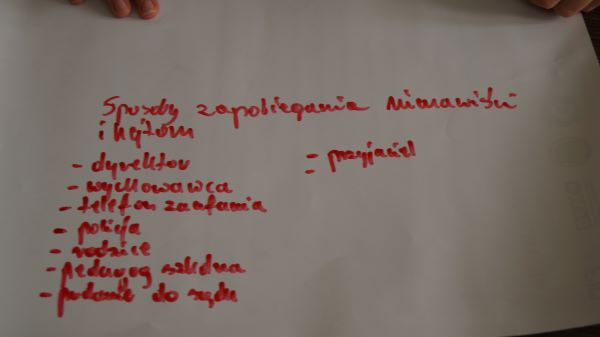 Sposoby zapobiegania nienawiści
i hejtom
- dyrektor
- wychowawca
- telefon zaufania
- policja
- rodzice
- pedagog szkolna
- podanie do sądu
- przyjaciel
-